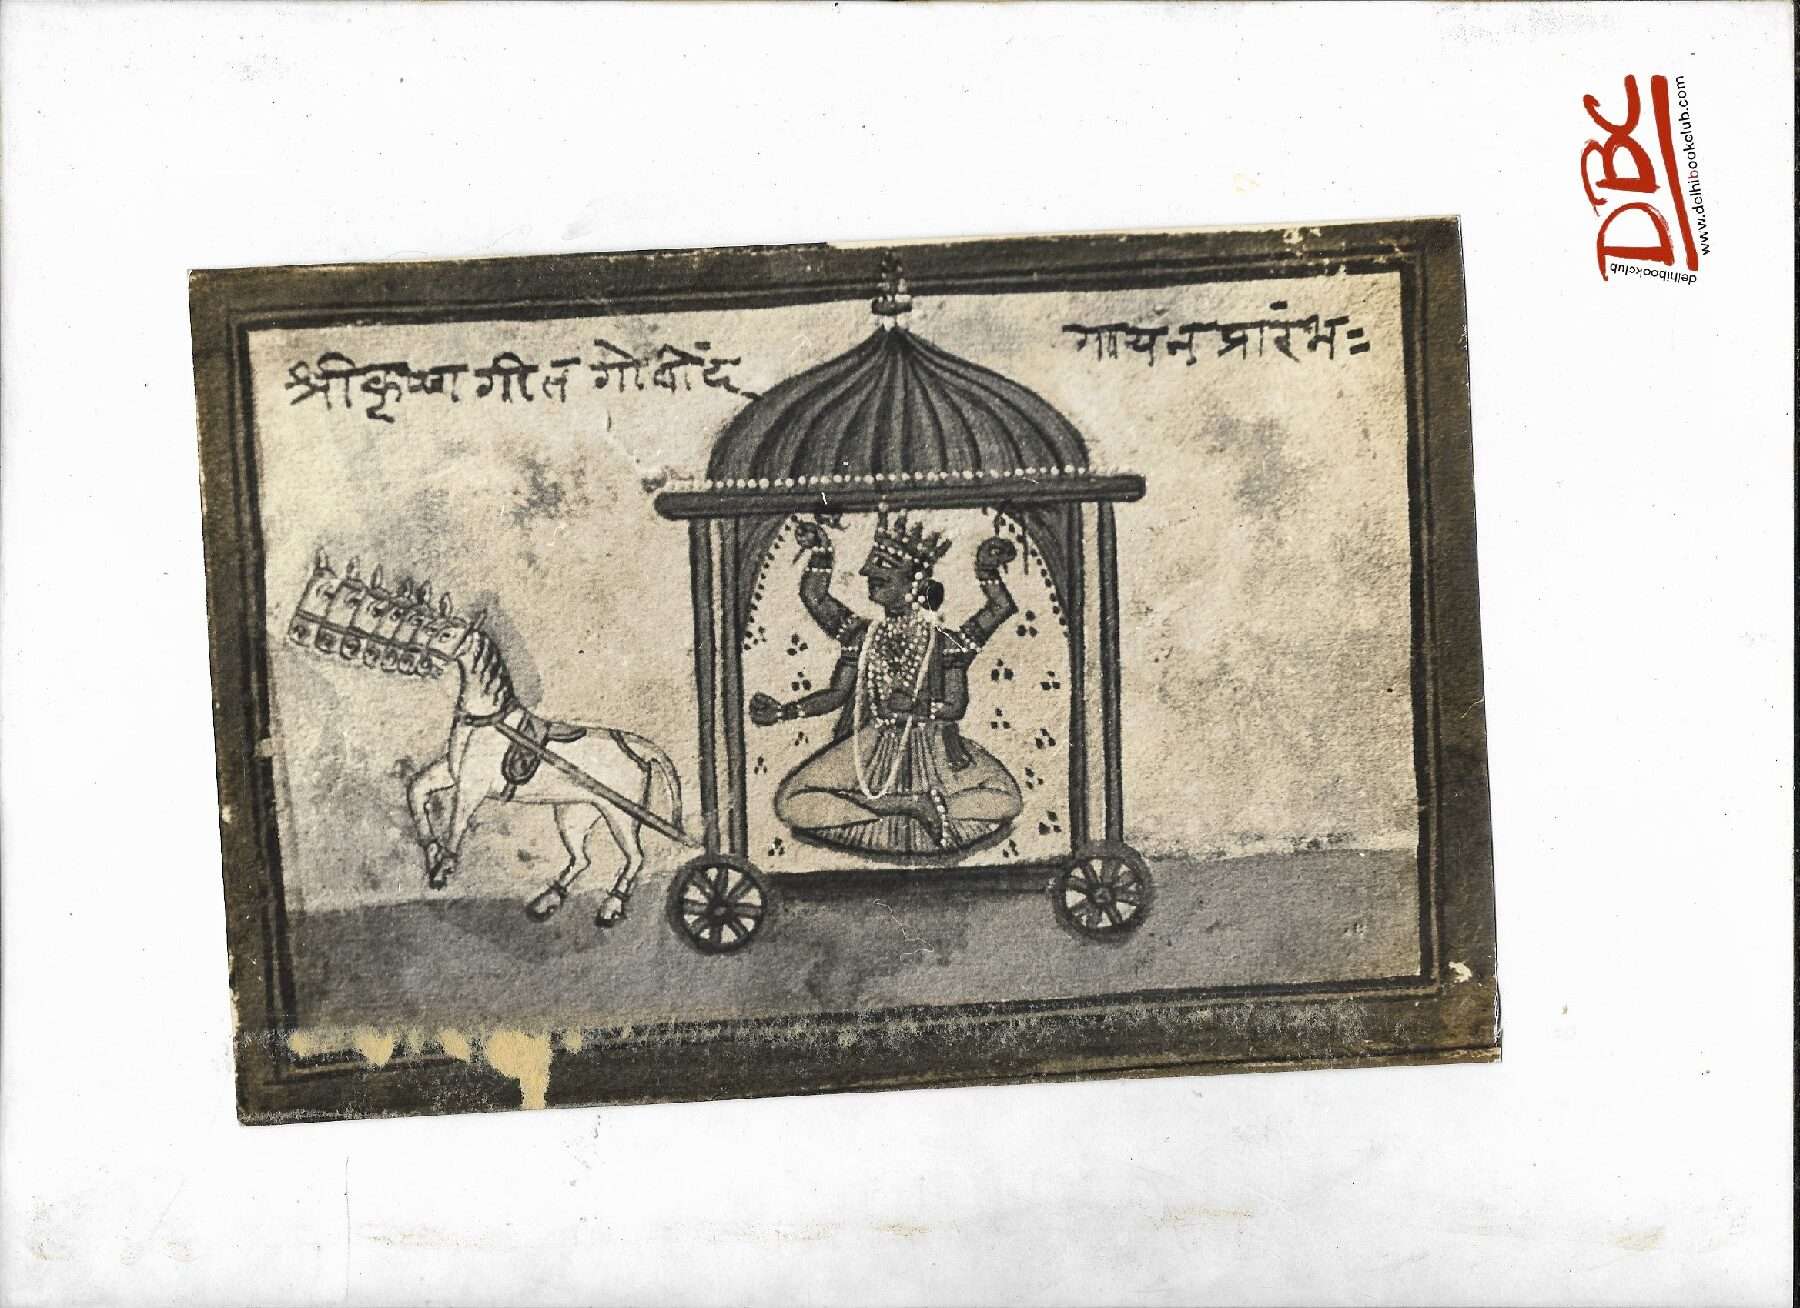 श्रीकृष्ण गीत गोवींद
गायन प्रारंभः
DBC
www.delhibookclub.com
delhibookclub